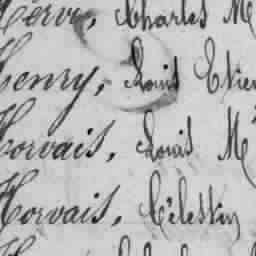 Hervé, Charles M
Henry, Louis Etien
Horvais, Louis M
Horvais, Célestin